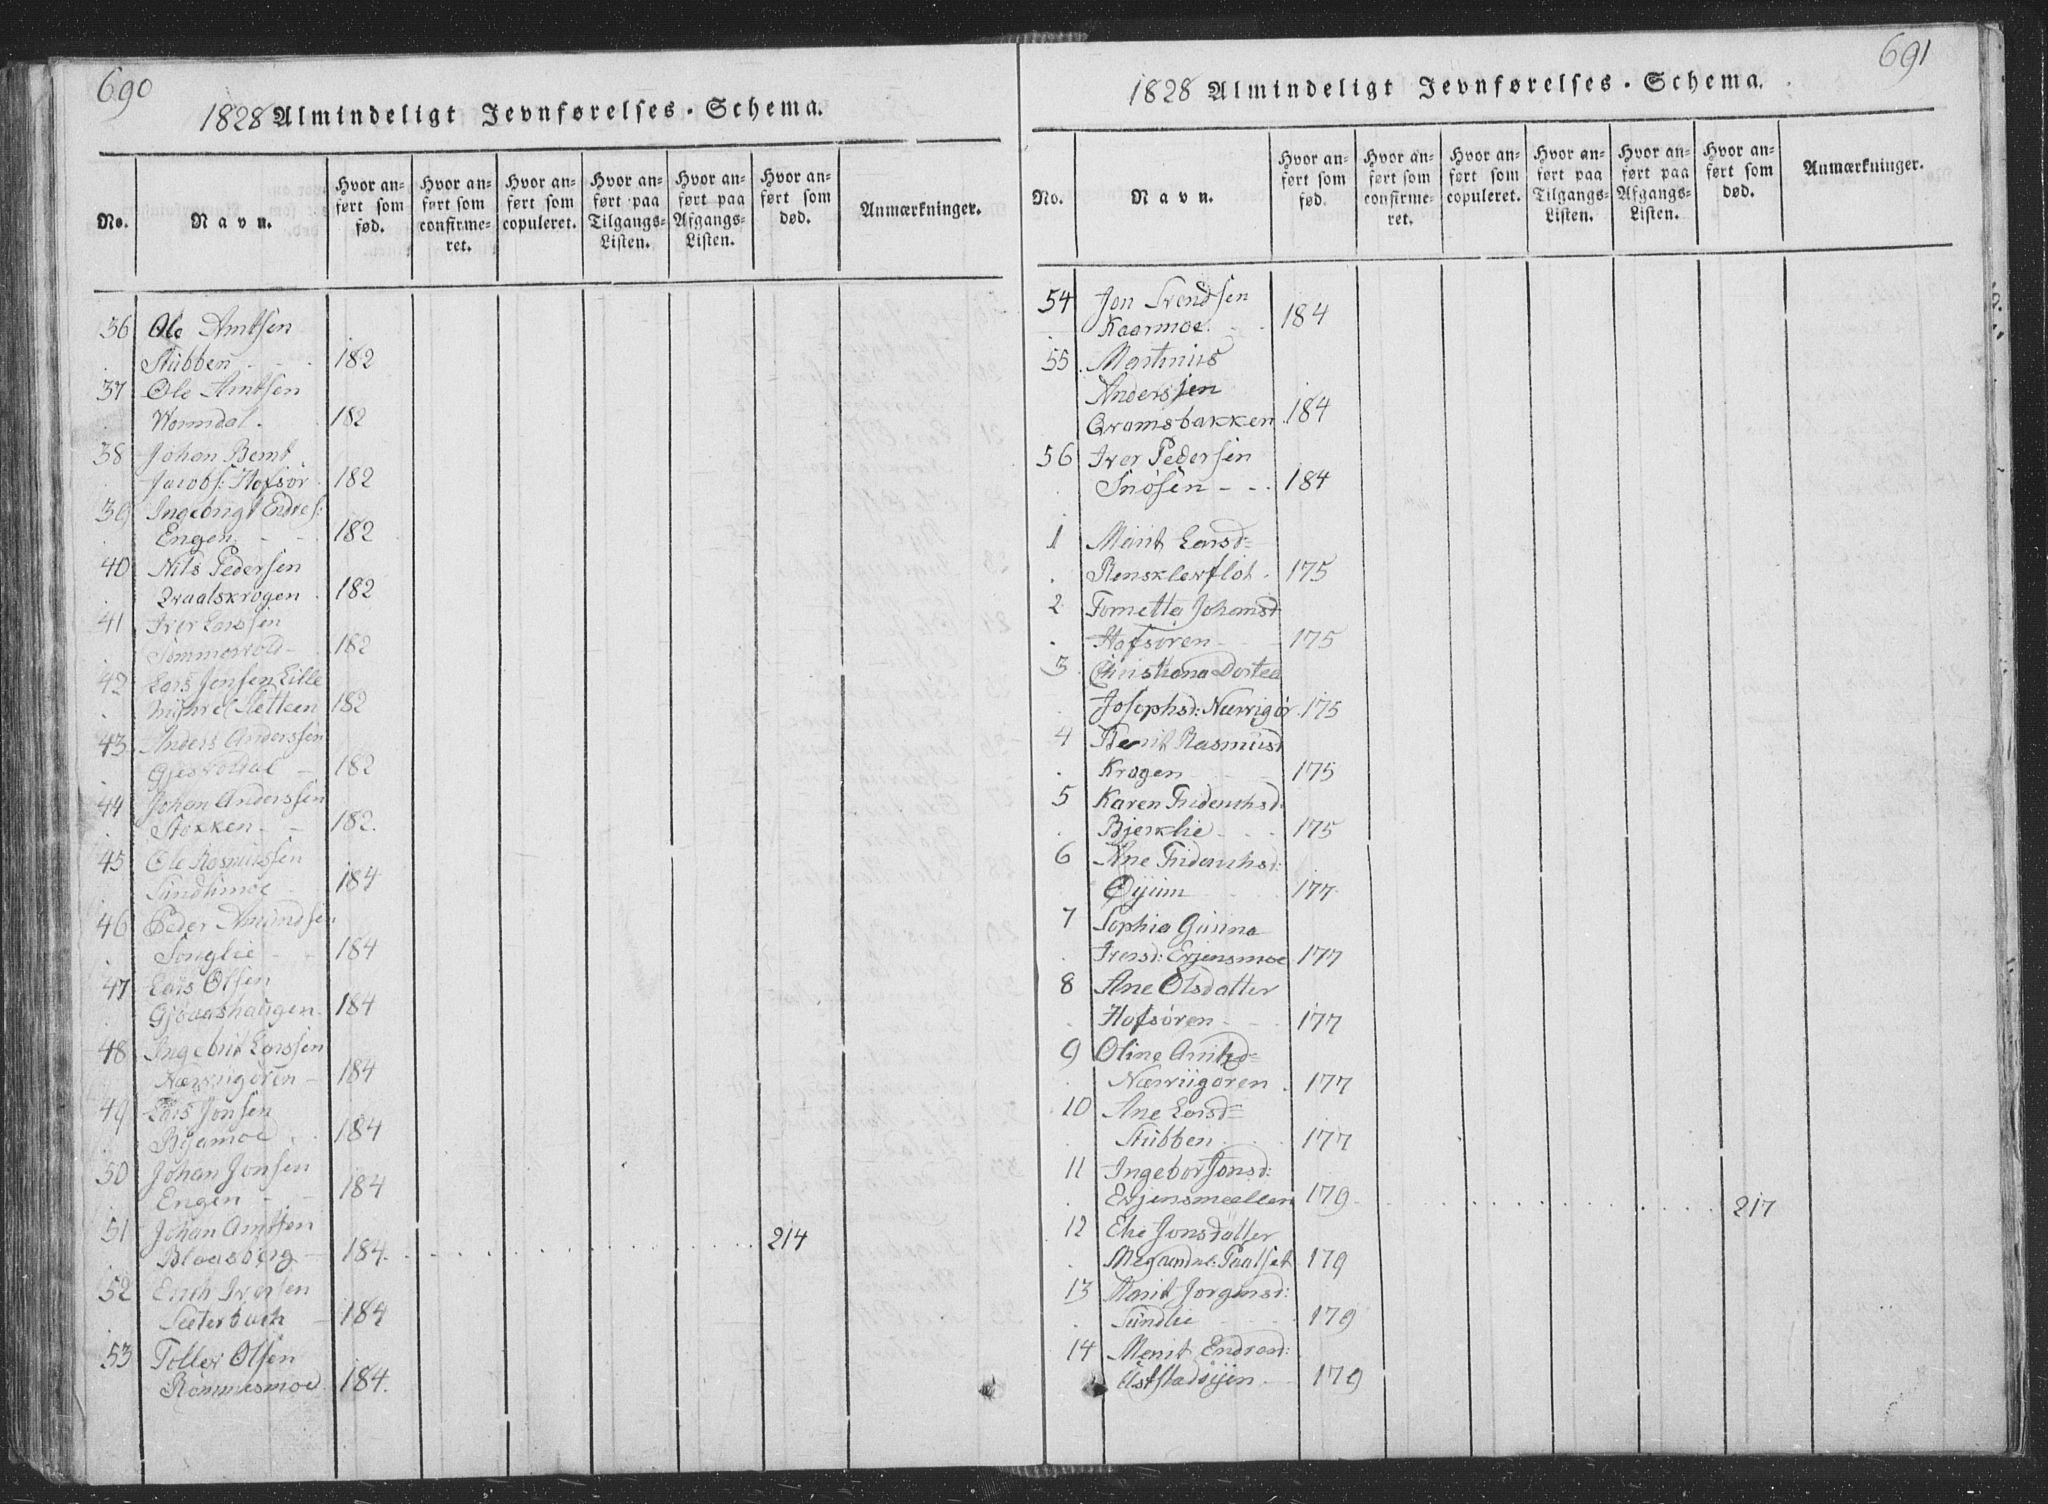 690
1828 Almindeligt Jevnførelses-Schema.
No.
Navn.
Hvor anført som fød.
Hvor anført som confirmeret.
Hvor anført som copuleret.
Hvor anført paa Tilgangs-Listen.
Hvor anført paa Afgangs-Listen.
Hvor anført som død.
Anmærkninger.
36 Ole Arntsen
Stübben 182
37 Ole Arntsen
Womdal. 182
38 Johan Bernt
Jacobs: Hofsør 182
39 Ingebrigt Endres:
Engen 182
40 Nils Pedersen
Qvaalskrogen 182
41 Iver Larssen
Sømmervold 182
42 Lars Jonsen Lille
Sletteen 182
43 Anders Anderssen
182
44 Johan Anderssen
Stokken 182.
45 Ole Rasmüssen
Sundlimoe 184
46 Peder Amundsen
Songlie 184
47 Lars Olsen
Gjøvaashaugen 184
48 Ingebrit Larssen
Nærviigøren 184
49 Lars Jonsen
Ryamoe 184
50 Johan Jonsen
Engen 184
51 Johan Arntsen
Blaasberg 184. 214
52 Erich Iversen
Sæterbach 184
53 Toller Olsen
Rømmesmoe 184.
691
1828 Almindeligt Jevnførelses-Schema.
No.
Navn.
Hvor anført som fød.
Hvor anført som confirmeret.
Hvor anført som copuleret.
Hvor anført paa Tilgangs-Listen.
Hvor anført paa Afgangs-Listen.
Hvor anført som død.
Anmærkninger.
54 Jon Svendsen
Kaarmoe 184
55. Martinius
Anderssen
Qvamsbakken 184
56 Iver Pedersen
Snøsen 184
1 Marit Larsd=
Rensklevflot. 175
2 Tornetta Johansd:
Hofsøren 175
3 Christiana Dortea
Josephsd: Nærvigør 175
4 Berit Rasmüsd
Kragen 175
5 Karen Friderichsd:
Bjerklie 175
6 Ane Friderichsd:
Øyum 177
7 Sophia Gunna
Iversd: Evjensmoe 177
8 Ane Olsdatter
Hofsøren 177
9 Oline Arntzd=
Nærviigøren 177
10 Ane Larsd=
Stübben 177
11 Ingebor Jonsd:
Evjensmoelien 179 217
12 Elie Jonsdatter
179
13 Marit Jørgensd:
Sundlie 179
14 Marit Endresd:
179